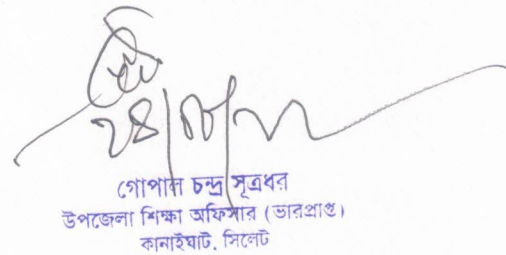 গোপাল চন্দ্র সূত্রধর
উপজেলা শিক্ষা অফিসার (ভারপ্রাপ্ত)
কানাইঘাট, সিলেট